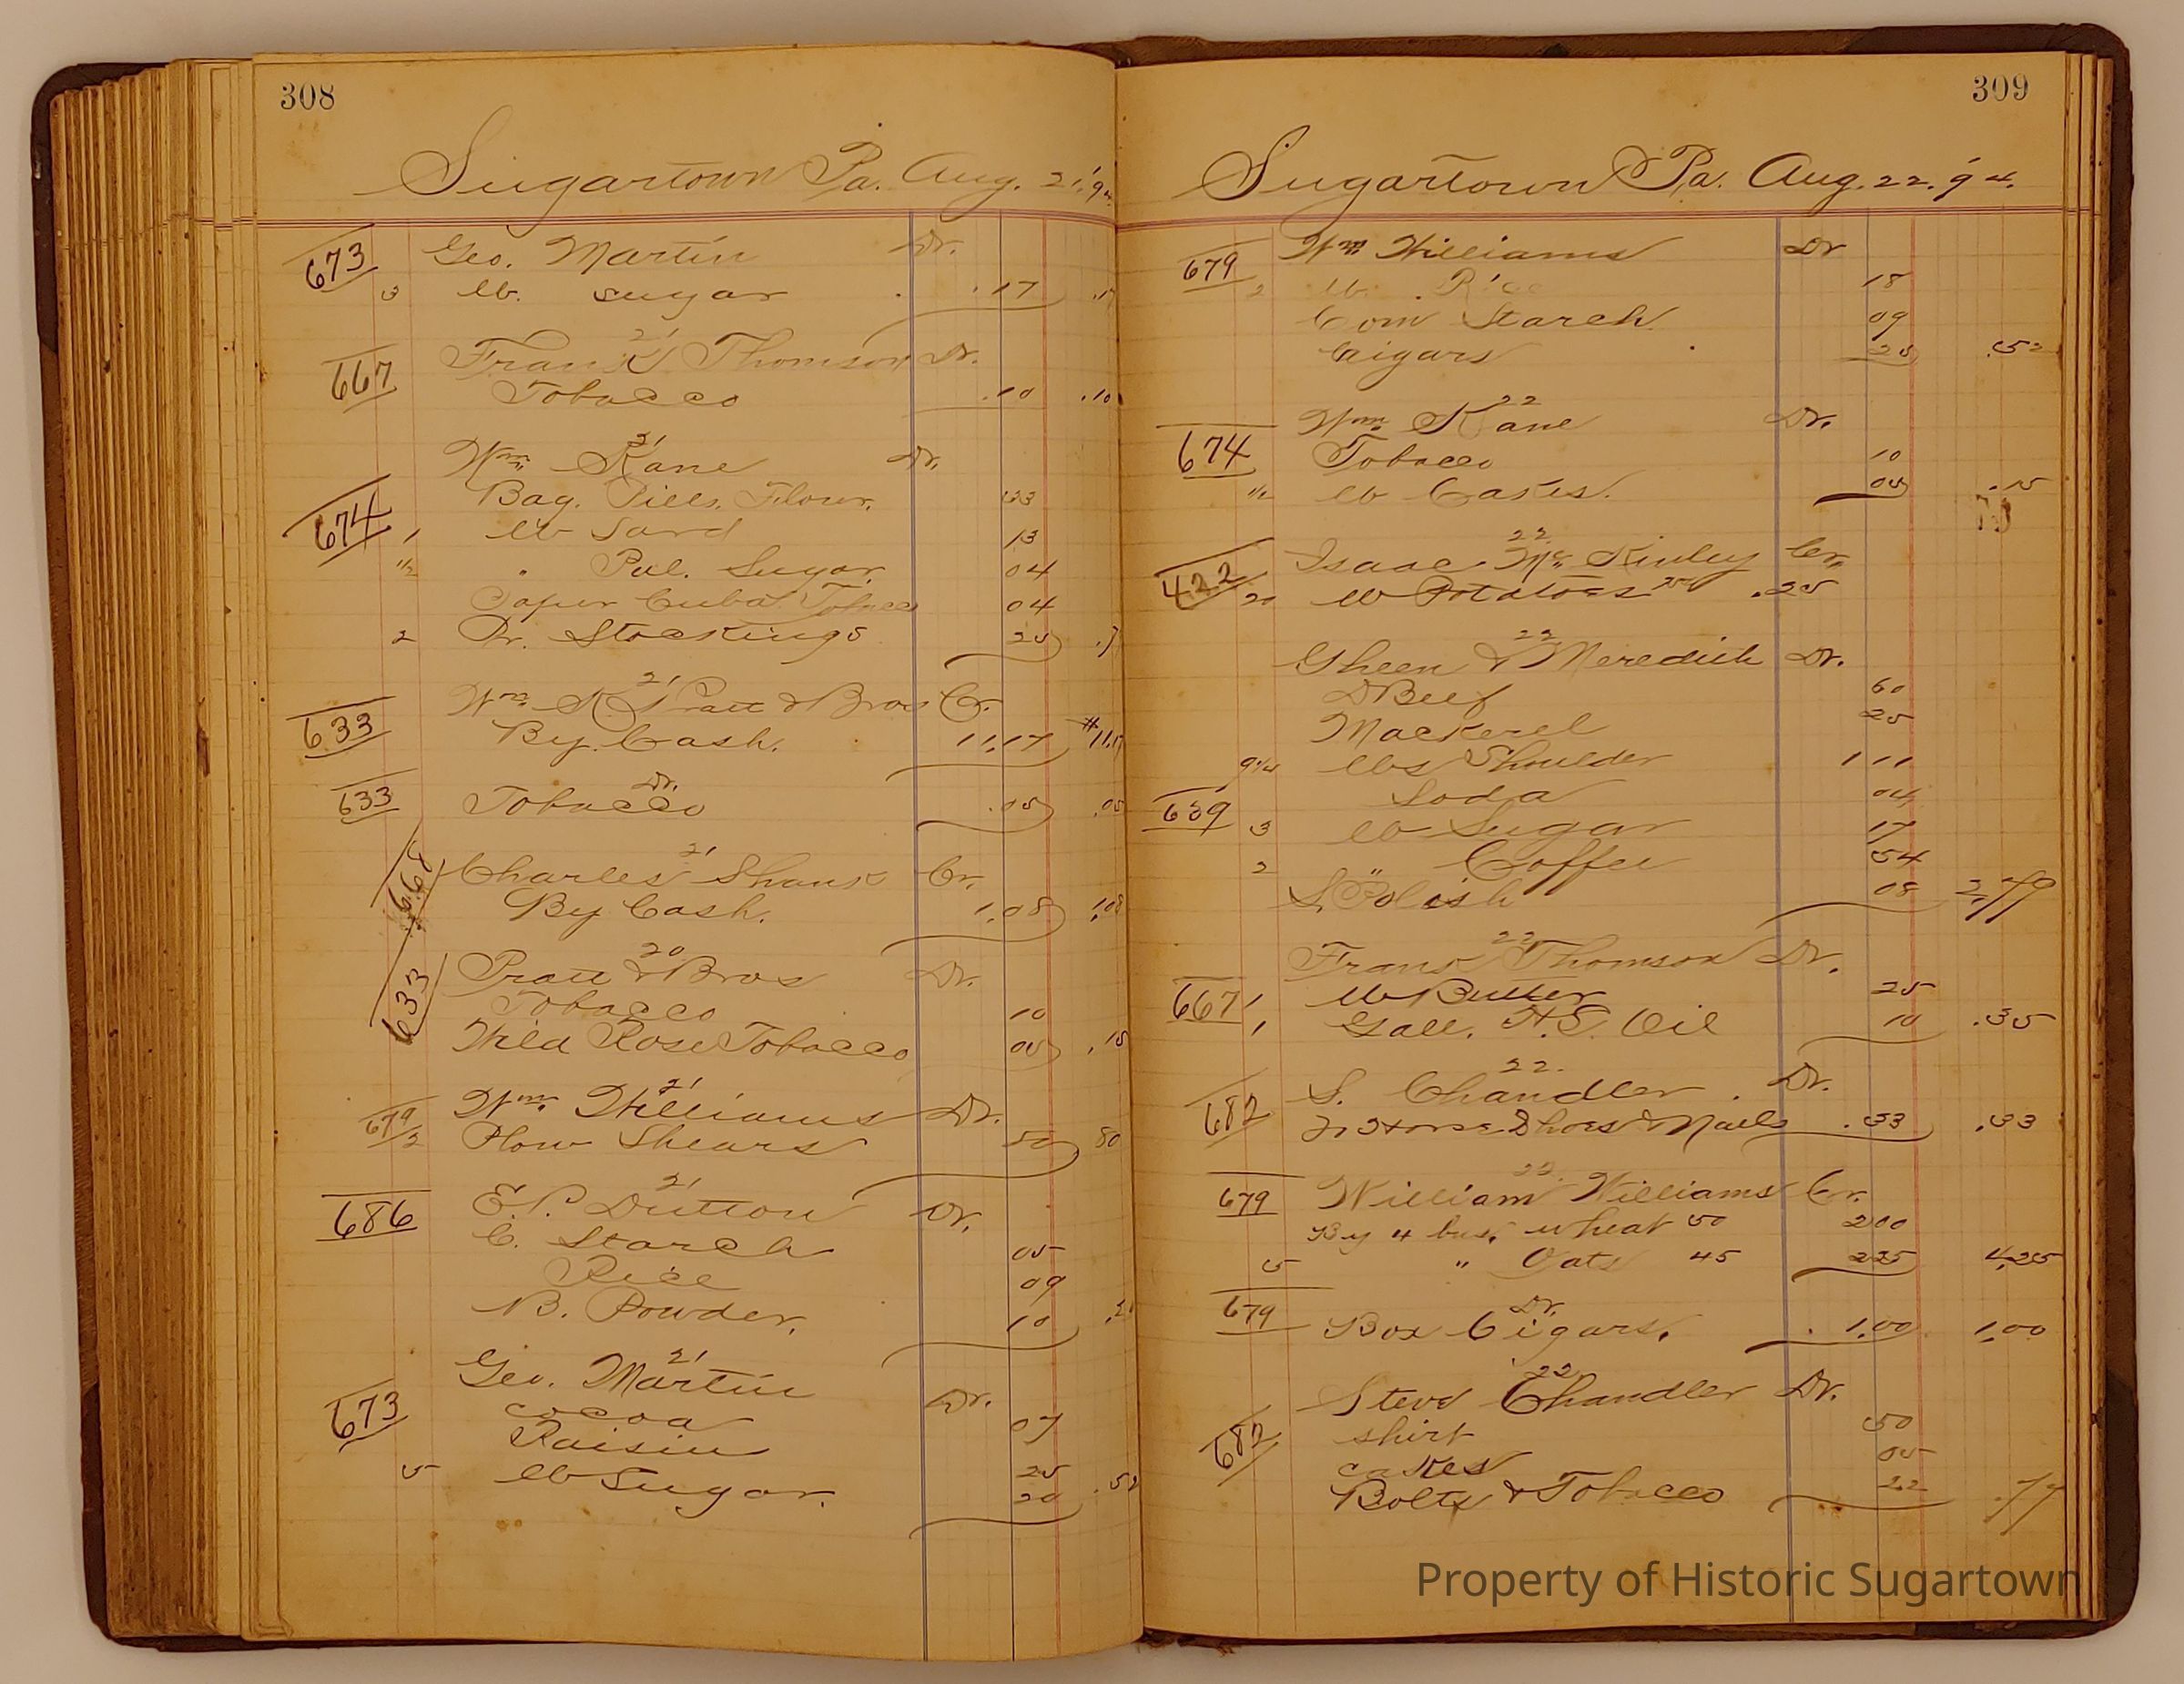 308
Sugartown Pa. Aug. 21, '94
673 Geo. Martin Dr.
3 lb. sugar .17 .17
21
667 Frank Thomson Dr.
Tobacco .10 .10
21
Wm. Kane Dr.
Bag. Pills. Flour. 33
674 1 lb Lard 13
1/2 " Pul. Sugar 04
Paper Cuba Tobacco 04
2 Pr. Stockings 25
21
Wm. K. Pratt & Bros Cr.
633 By Cash. 11.17 $11.17
Dr.
633 Tobacco .05 .05
21
668 Charles Shank Cr.
By Cash. 1.08 1.08
20
633 Pratt & Bros Dr.
Tobacco 10
Wild Rose Tobacco 05 .15
21
679 Wm. Williams Dr.
2 Plow Shears 80
21
686 E. P. Dutton Dr.
C. Starch 05
Rice 09
B. Powder. 10
21
Geo. Martin Dr.
673 cocoa 07
Raisin 25
5 lb Sugar. 20 .52
309
Sugartown Pa. Aug. 22. '94.
679 Wm Williams Dr
2 lb. Rice 18
Corn Starch 09
Cigars 25 .52
22
Wm. Kane Dr.
674 Tobacco 10
1/2 lb Cakes. 05 .15
22
Isaac Mc. Kinley Cr.
422 20 lb Potatoes .25
22
Gheen & Meredith Dr.
D Beef 60
Mackerel 25
9 1/4 lbs Shoulder 1 11
Soda 04
689 3 lb Sugar 17
2 " Coffee 54
S. Polish 08 2,79
22
Frank Thomson Dr.
667 1 lb Butter 25
1 Gall. H. L. Oil 10 .35
22.
S. Chandler. Dr.
682 2 Horse Shoes & Nails .33 .33
22
679 William Williams Cr.
By 4 bus. wheat 50 200
5 " Oats 45 225 4,25
Dr.
679 Box Cigars. 1.00 1,00
22
Steve Chandler Dr.
shirt 50
682 cakes 05
Bolts & Tobacco 22 .77
Property of Historic Sugartown